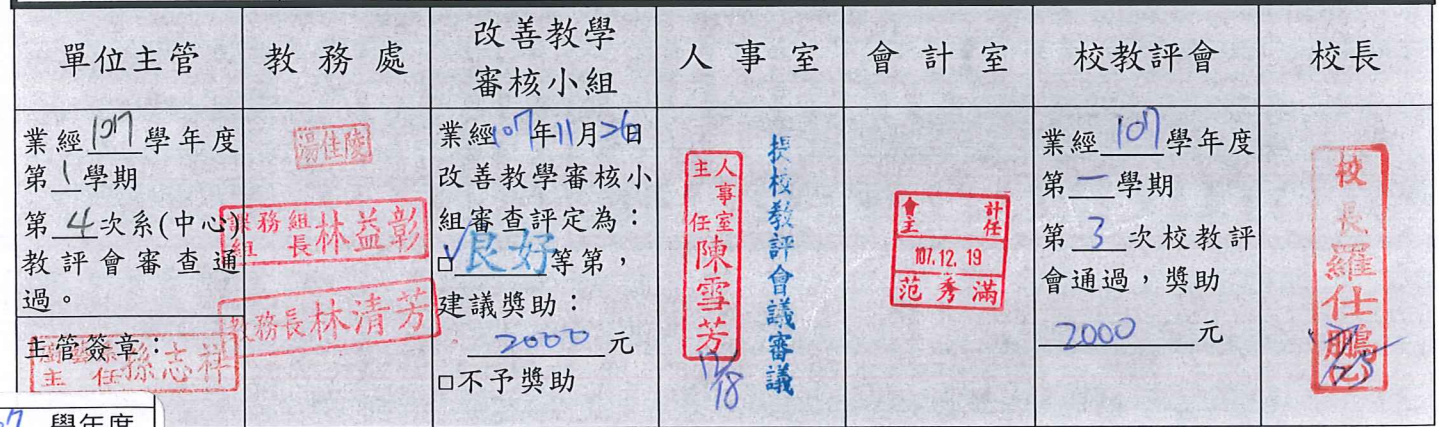 單位主管
教務處
改善教學
審核小組
人事室
會計室
校教評會
校長
業經107學年度
第1學期
第4次系(中心)
教評會審查通
過。
主管簽章：
主任孫志祥
湯佳陵
課務組
組長林益彰
教務長林清芳
業經107年11月26日
改善教學審核小
組審查評定為：
☑良好等第，
建議獎助：
2000元
□不予獎助
人事室
主任
陳雪芳
12/18
提校教評會議審議
會計
主任
107.12.19
范秀滿
業經107學年度
第一學期
第3次校教評
會通過，獎助
2000元
校長羅仕鵬
學年度